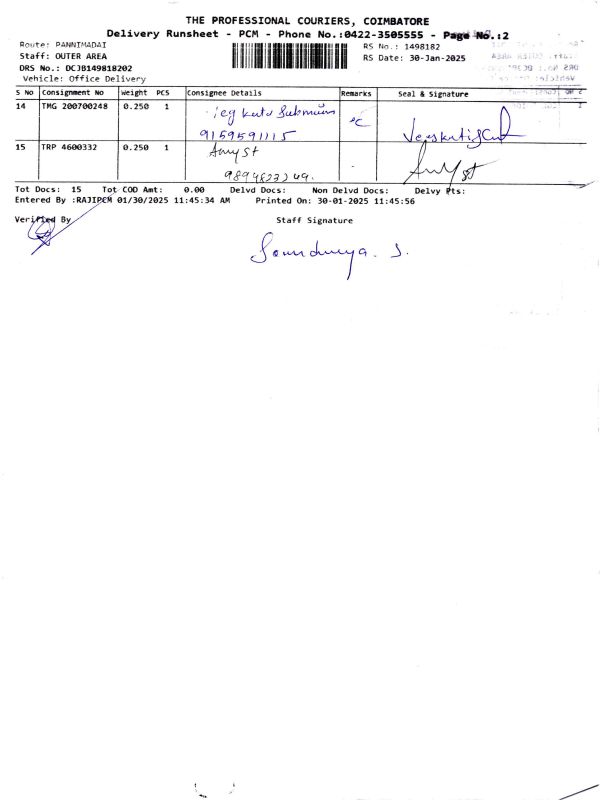 THE PROFESSIONAL COURIERS, COIMBATORE
Delivery Runsheet - PCM - Phone No.:0422-3505555 - Page No.:2
Route: PANNIMADAI
Staff: OUTER AREA
DRS No.: DCJB149818202
Vehicle: Office Delivery
RS No.: 1498182
RS Date: 30-Jan-2025
S No Consignment No Weight PCS Consignee Details Remarks Seal & Signature
14 TMG 200700248 0.250 1
9159591115
15 TRP 4600332 0.250 1
Tot Docs: 15 Tot COD Amt: 0.00 Delvd Docs: Non Delvd Docs: Delvy Pts:
Entered By :RAJIPCM 01/30/2025 11:45:34 AM Printed On: 30-01-2025 11:45:56
Verified By Staff Signature
Soundurya. S.